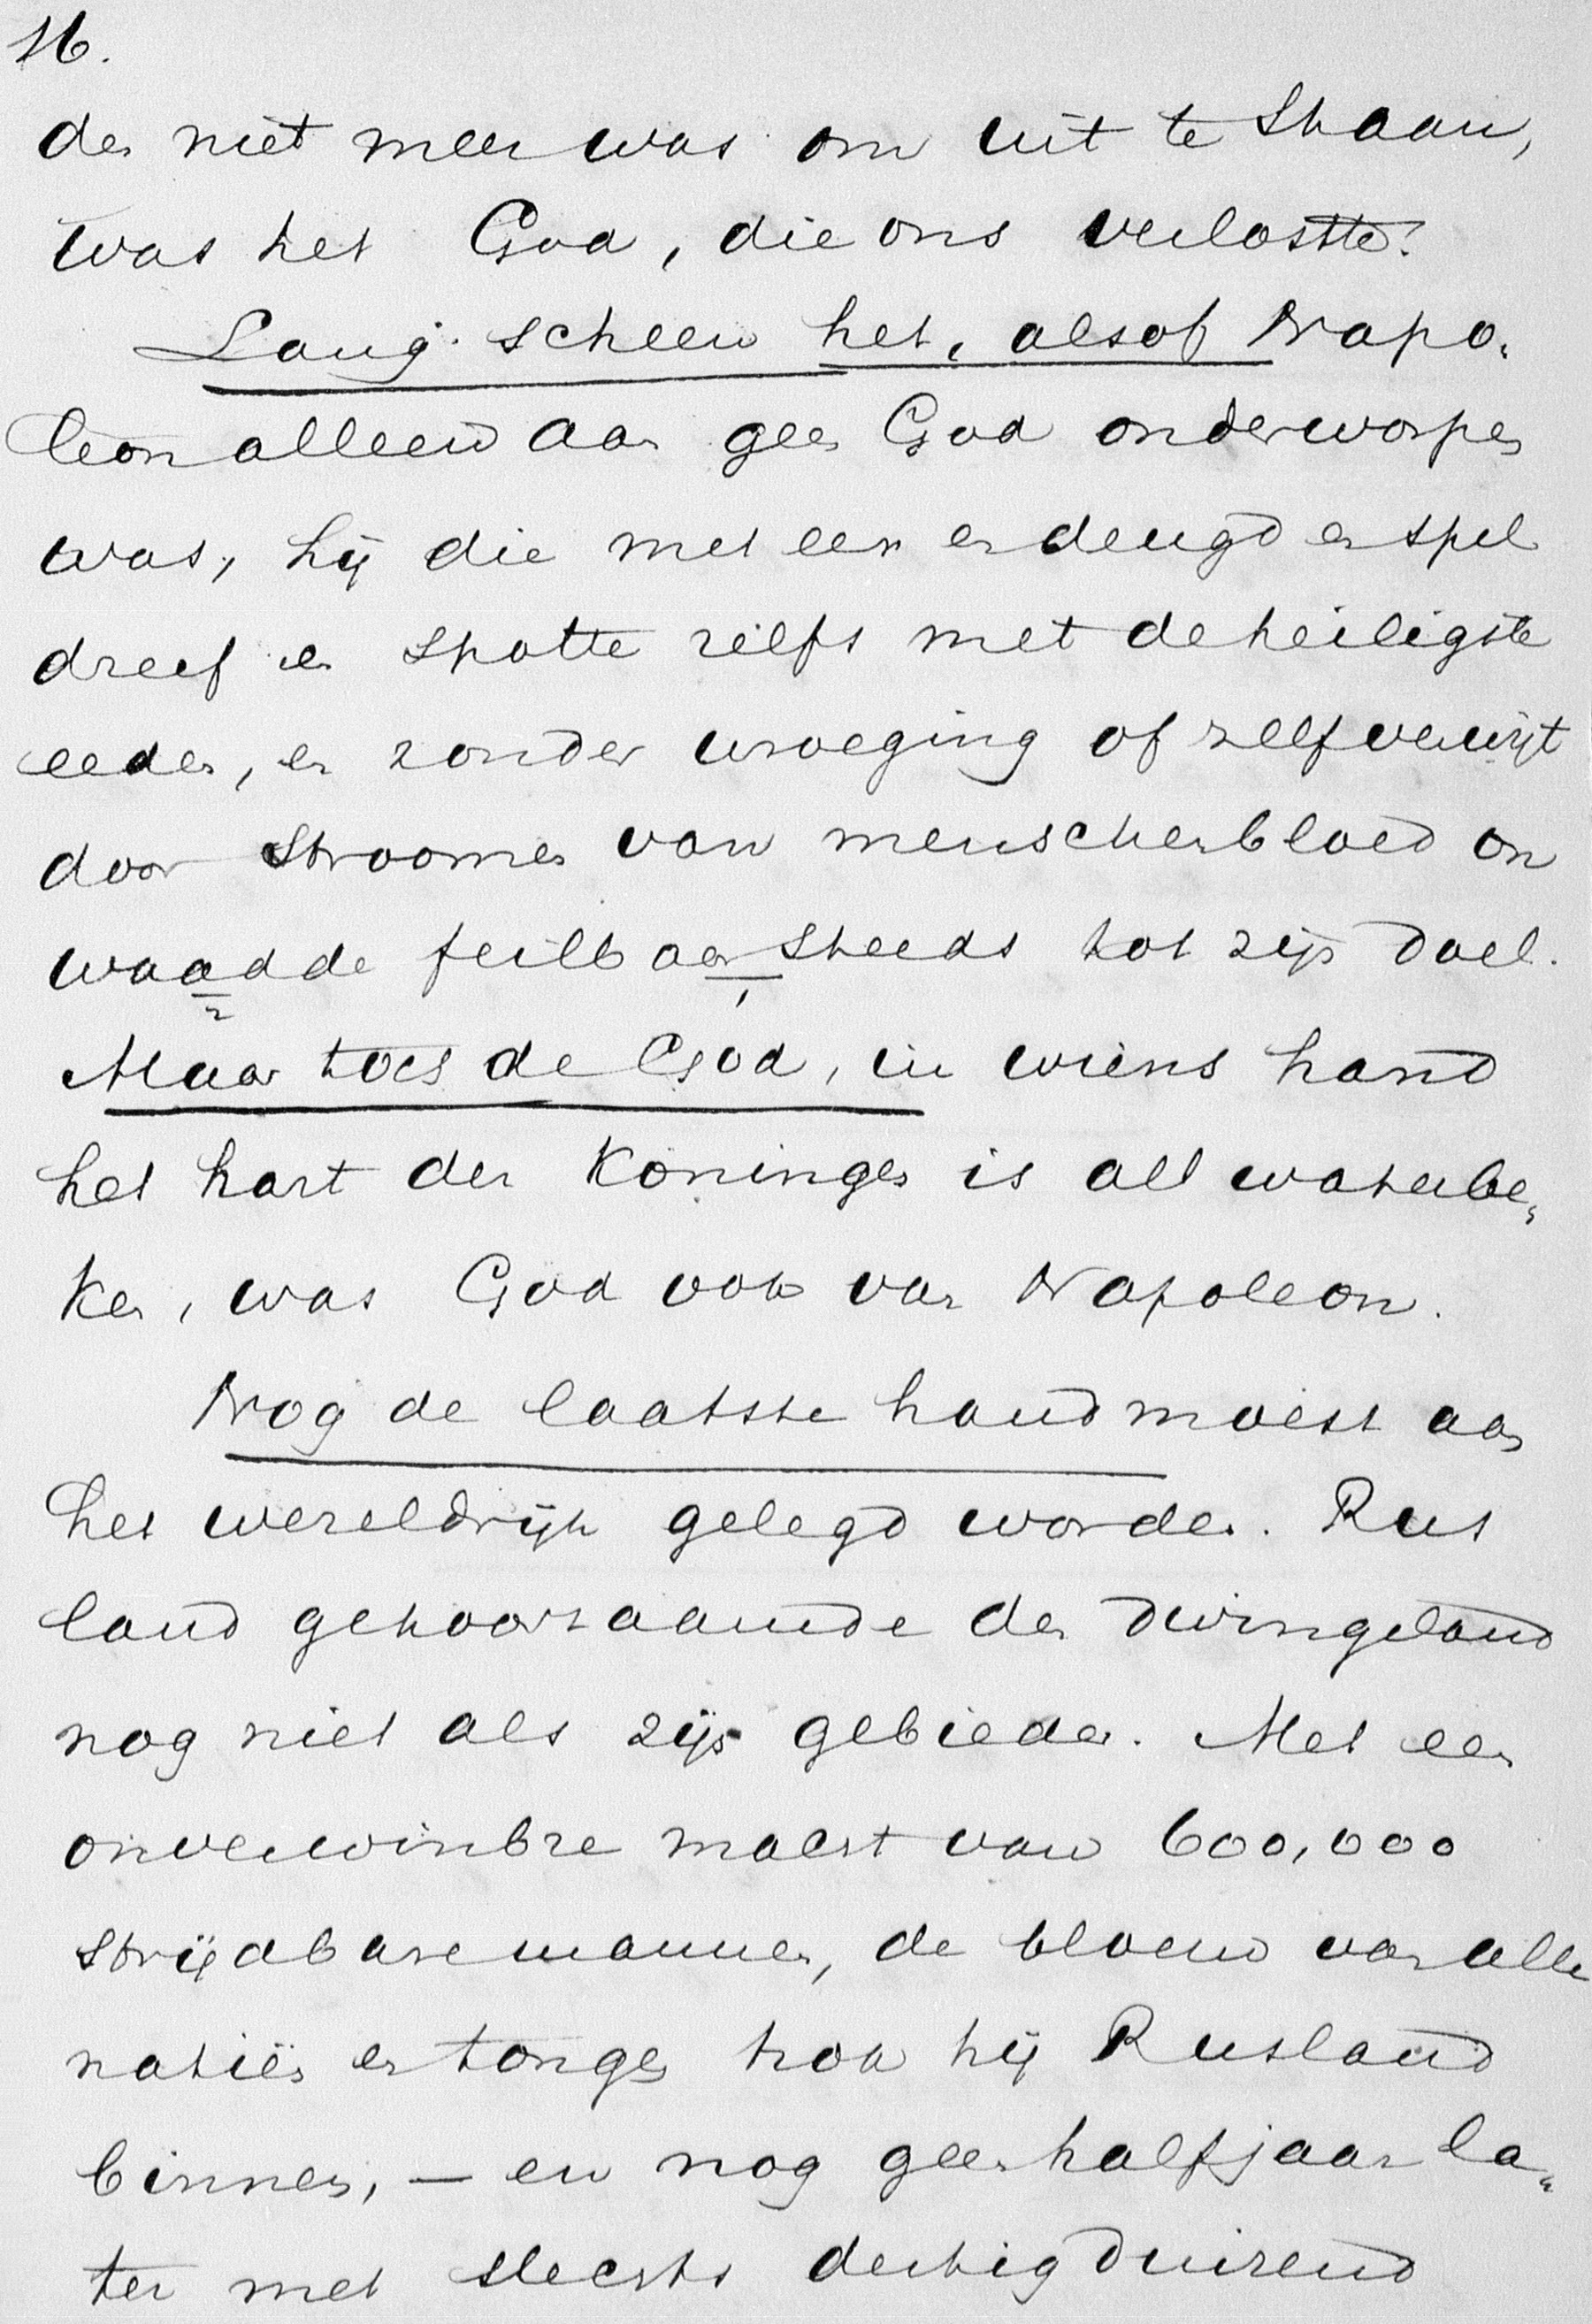 16.
den niet meer was om uit te staan,
was het God, die ons verloste!
Lang scheen het, alsof Napo„
leon alleen aan geen God onderworpen
was, hij die met eer en deugd en spel
dreef en spotte zelfs met de heiligste
eeden, en zonder wroeging of zelfverwijt
door stroomen van menschenbloed on
waadde feilbaar steeds tot zijn doel.
Maar toch de God, in wiens hand
het hart der Koningen is als waterbe„
ken, was God ook van Napoleon.
Nog de laatste hand moest aan
het wereldrijk gelegd worden. Rus
land gehoorzaamde den dwingeland
nog niet als zijn gebieder. Met een
onverwinbre macht van 600,000
strijdbare mannen, de bloem van alle
natiën en tongen trok hij Rusland
binnen, — en nog geen half jaar la„
ter met slechts dertig duizend